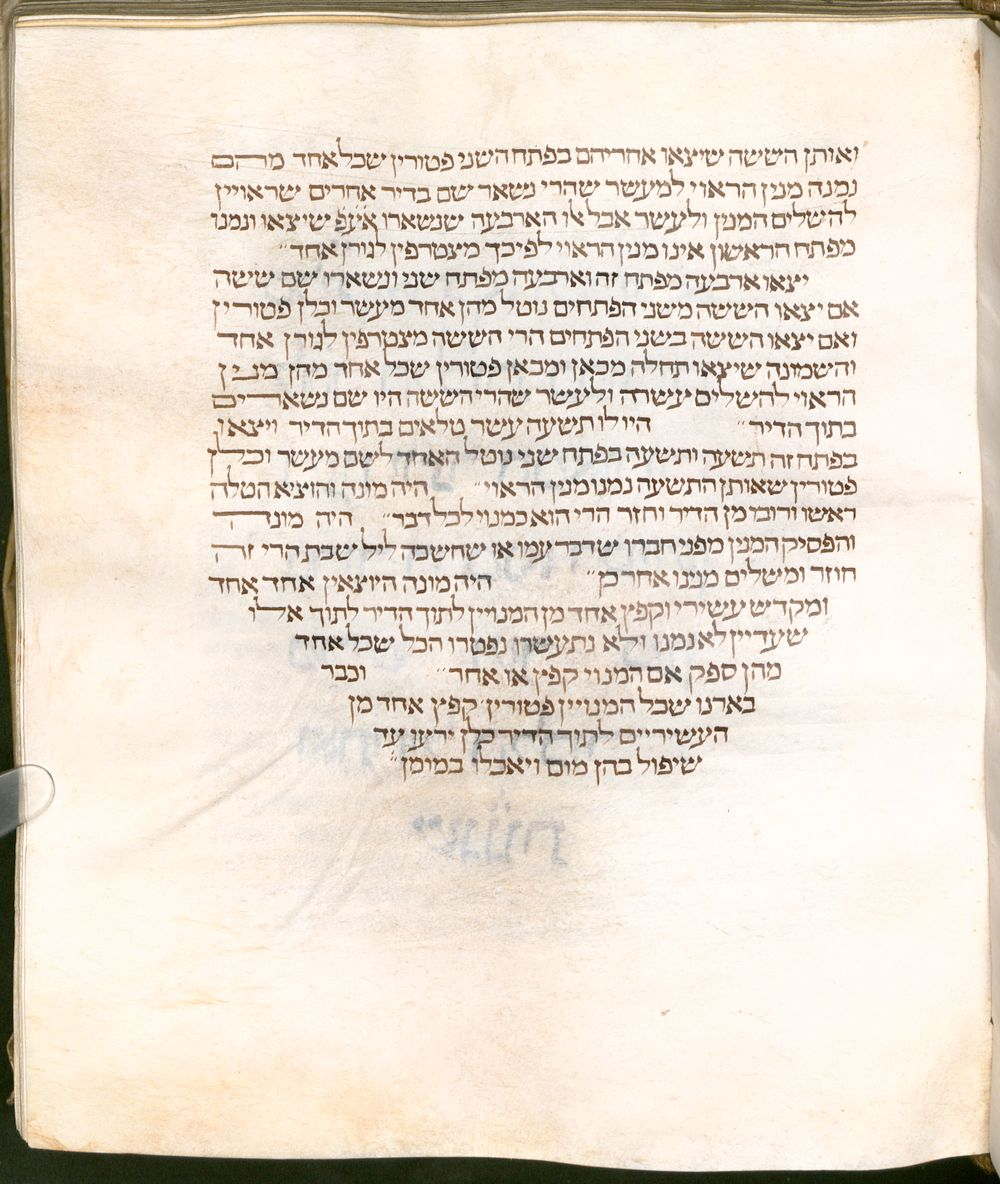 ואותן הששה שיצאו אחריהם בפתח השני פטורין שכל אחד מהם
נמנה מנין הראוי למעשר שהרי נשאר שם בדיר אחרים שראויין
להשלים המנין ולעשר אבל אלו הארבעה שנשארו אעפ שיצאו ונמנו
מפתח הראשון אינו מנין הראוי לפיכך מצטרפין לגורן אחד״
יצאו ארבעה מפתח זה וארבעה מפתח שני ונשארו שם ששה
אם יצאו הששה משני הפתחים נוטל מהן אחד מעשר וכלן פטורין
ואם יצאו הששה בשני הפתחים הרי הששה מצטרפין לגורן אחד
והשמונה שיצאו תחלה מכאן ומכאן פטורין שכל אחד מהן מנין
הראוי להשלים עשרה ולעשר שהרי הששה היו שם נשארים
בתוך הדיר״ היו לו תשעה עשר טלאים בתוך הדיר ויצאו
בפתח זה תשעה ותשעה בפתח שני נוטל האחד לשם מעשר וכלן
פטורין שאותן התשעה נמנו מנין הראוי״ היה מונה והוציא הטלה
ראשו ורובו מן הדיר וחזר הרי הוא כמנוי לכל דבר״ היה מונה
והפסיק המנין מפני חברו שדבר עמו או שחשכה ליל שבת הרי זה
חוזר ומשלים מנינו אחר כן״ היה מונה היוצאין אחד אחד
ומקדש עשירי וקפץ אחד מן המנויין לתוך הדיר לתוך אלו
שעדיין לא נמנו ולא נתעשרו נפטרו הכל שכל אחד
מהן ספק אם המנוי קפץ או אחר״ וכבר
בארנו שכל המנויין פטורין קפץ אחד מן
העשיריים לתוך הדיר כלן ירעו עד
שיפול בהן מום ויאכלו במומן״